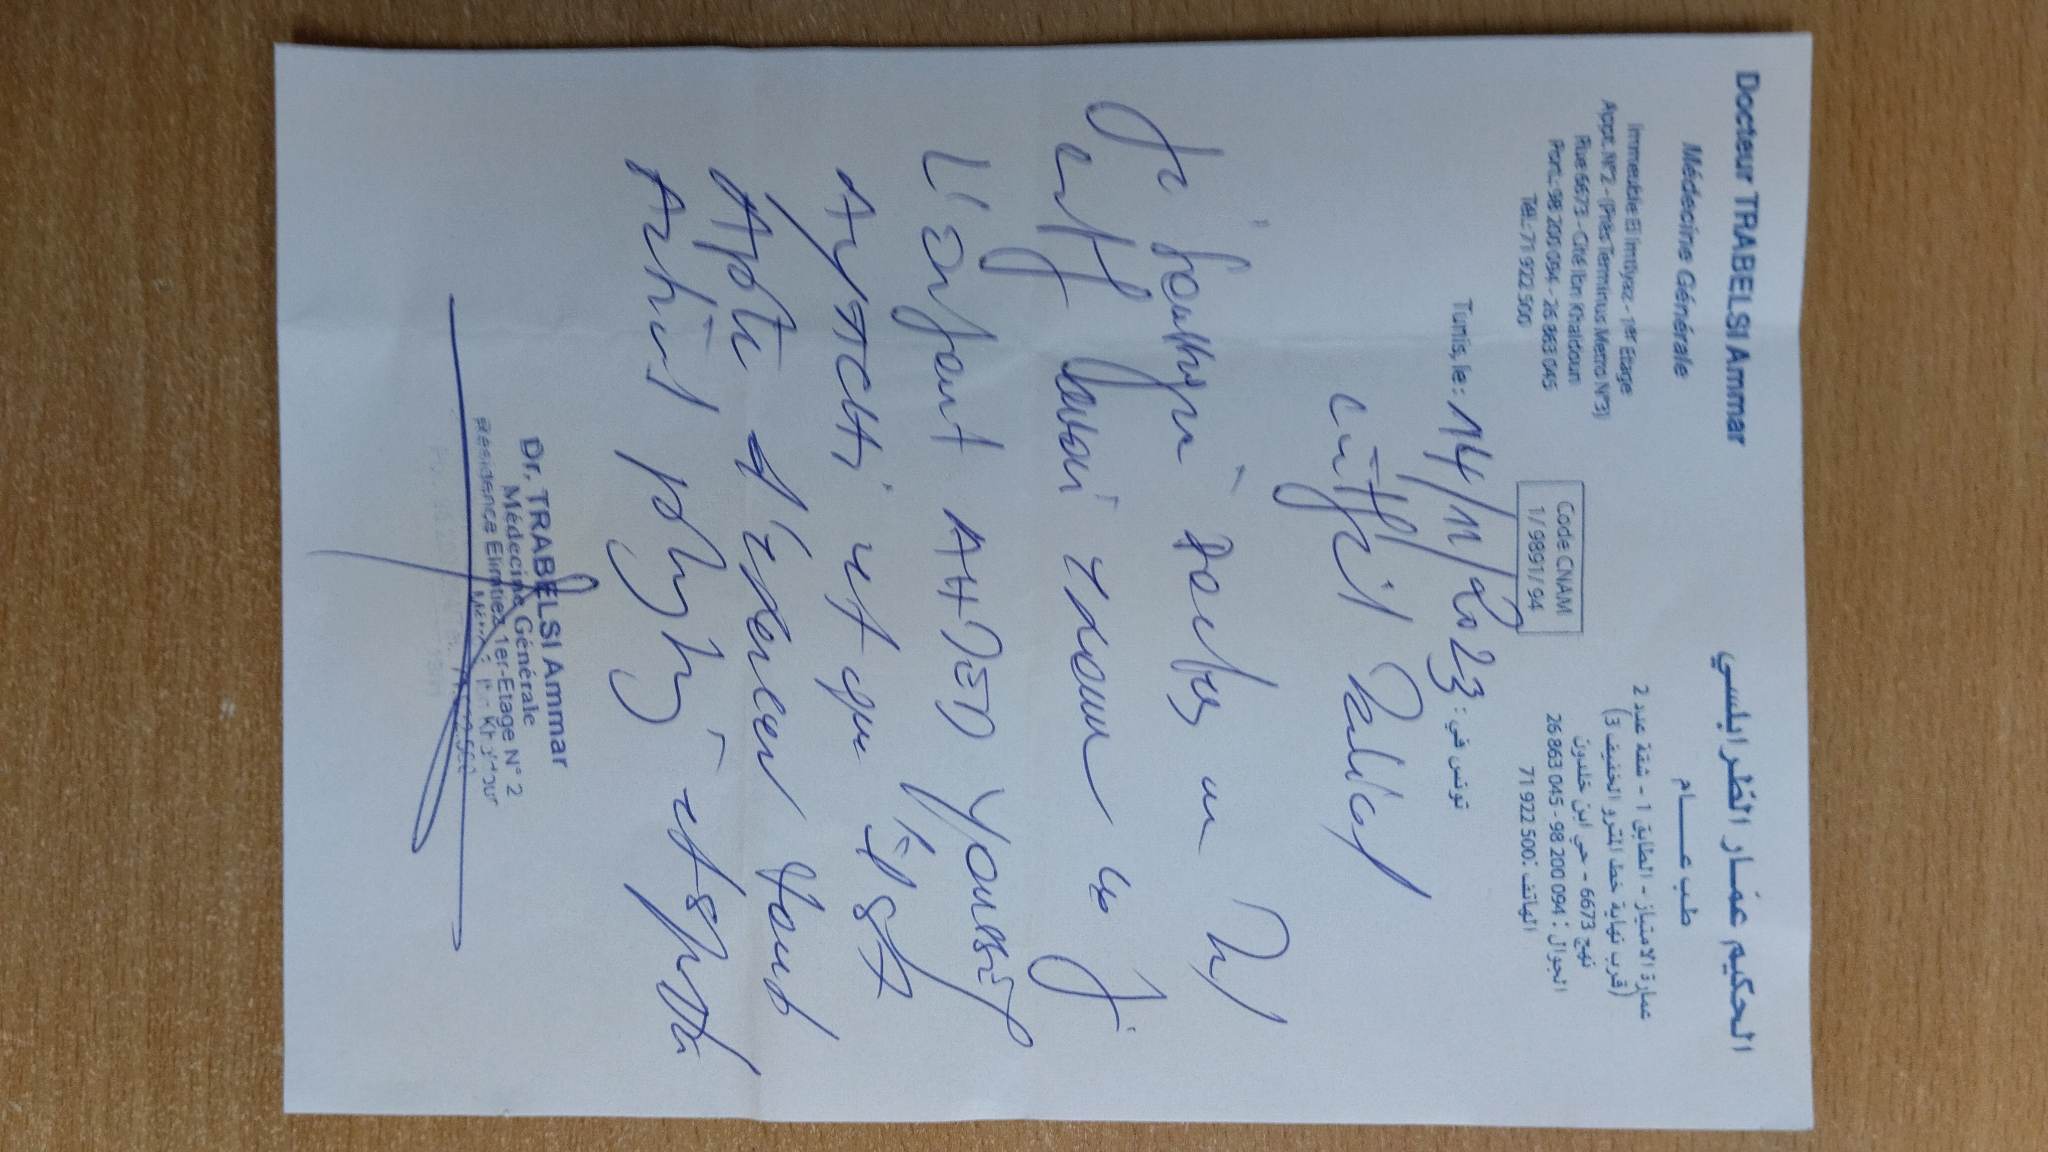 Docteur TRABELSI Ammar
Médecine Générale
Immeuble El Imtiyez - 1er Etage
Appt. N°2 - (Près Terminus Metro N°3)
Rue 6673 - Cité Ibn Khaldoun
Port.: 98 200 094 - 26 863 045
Tél.: 71 922 500
الحكيم عمّار الطّرابلسي
طب عـــام
عمارة الامتياز - الطابق 1 - شقة عدد 2
(قرب نهاية خط المترو الخفيف 3)
نهج 6673 - حي ابن خلدون
الجوال : 094 200 98 - 045 863 26
الهاتف :500 922 71
Code CNAM
1/9891/94
Tunis, le : 14/11/2023 : تونس في
Je soussigné Docteur en
certifie avoir examiné ce j
L'enfant AHMED Youssef
AYACHI et qu'il est
Apte d'exercer toute
Activité physique et sportive
Dr. TRABELSI Ammar
Médecine Générale
Résidence Elimtiez 1er-Etage N° 2